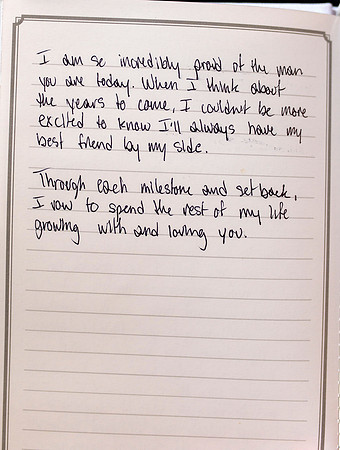 I am so incredibly proud of the man
you are today. When I think about
the years to come, I couldn't be more
excited to know I'll always have my
best friend by my side.
Through each milestone and setback,
I vow to spend the rest of my life
growing with and loving you.